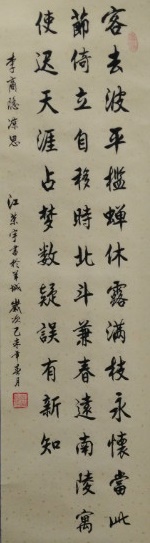 客去波平檻蟬休露滿枝永懷當此
節倚立自移時北斗兼春遠南陵寓
使迟天涯占梦数疑誤有新知
李商隱凉思
江 宇書於羊城 歲次 未年 月